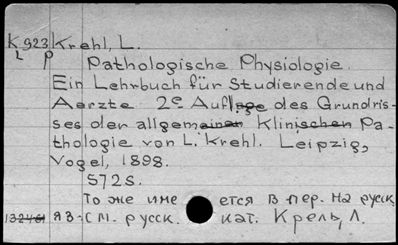 K 923 Krehl, L.
L p Pathologische Physiologie.
Ein Lehrbuch für Studierende und
Aerzte 2e Auflage des Grundris-
ses der allgemeinen Klinischen Pa-
thologie von L. Krehl. Leipzig,
Vogel, 1898.
572 s.
То же име ется в пер. на русск.
132461 яз. См. русск. кат. Крель, Л.